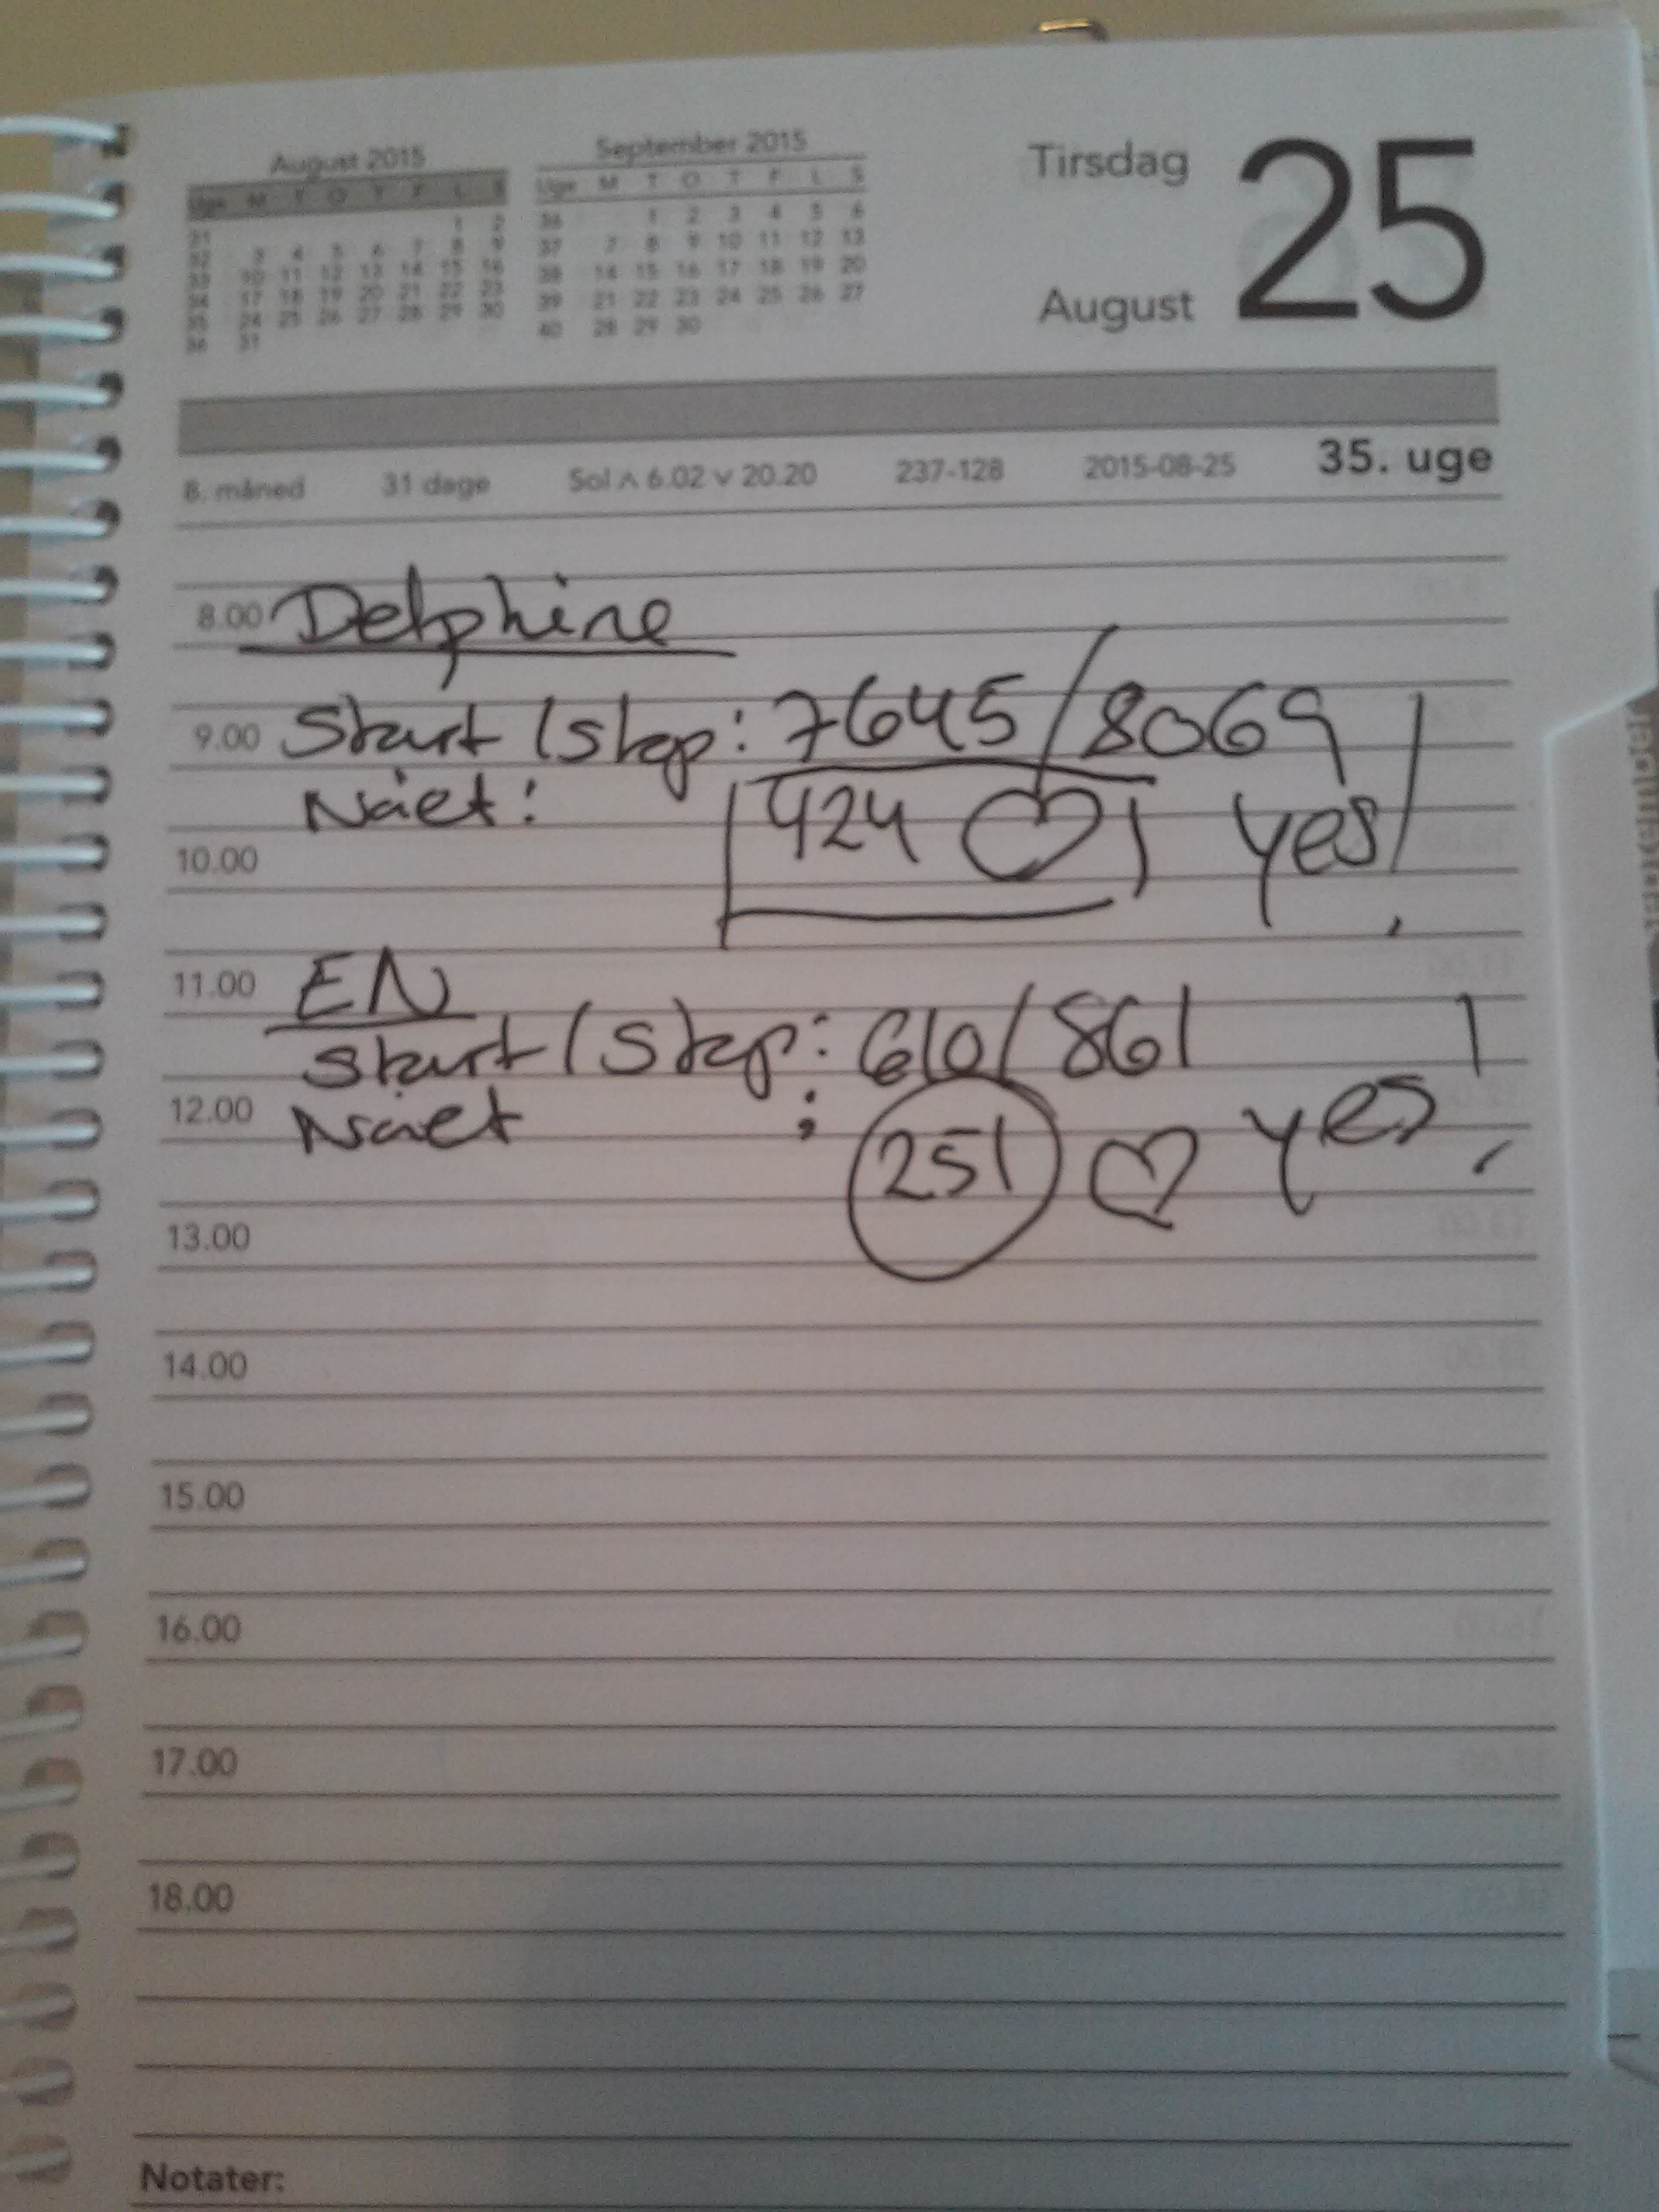 August 2015
Uge M T O T F L S
31 1 2
32 3 4 5 6 7 8 9
33 10 11 12 13 14 15 16
34 17 18 19 20 21 22 23
35 24 25 26 27 28 29 30
36 31
September 2015
Uge M T O T F L S
36 1 2 3 4 5 6
37 7 8 9 10 11 12 13
38 14 15 16 17 18 19 20
39 21 22 23 24 25 26 27
40 28 29 30
Tirsdag
25
August
8. måned 31 dage Sol ∧ 6.02 ∨ 20.20 237-128 2015-08-25 35. uge
8.00 Delphine
9.00 Start/stop: 7645/8069
Nået: 424 ♡ yes!
10.00
11.00 EN
Start/Stop: 610/861
12.00 Nået : 251 ♡ yes!
13.00
14.00
15.00
16.00
17.00
18.00
Notater: